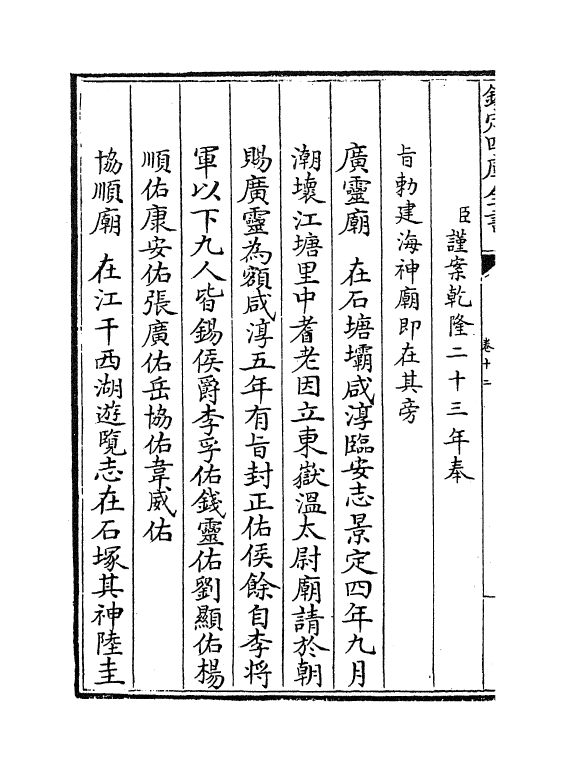 欽定四庫全書
卷十二
臣謹案乾隆二十三年奉
旨勅建海神廟即在其旁
廣靈廟 在石塘壩咸淳臨安志景定四年九月
潮壞江塘里中耆老因立東嶽溫太尉廟請於朝
賜廣靈為額咸淳五年有旨封正佑侯餘自李将
軍以下九人皆錫侯爵李孚佑錢靈佑劉顯佑楊
順佑康安佑張廣佑岳協佑韋威佑
協順廟 在江干西湖遊覽志在石塚其神陸圭